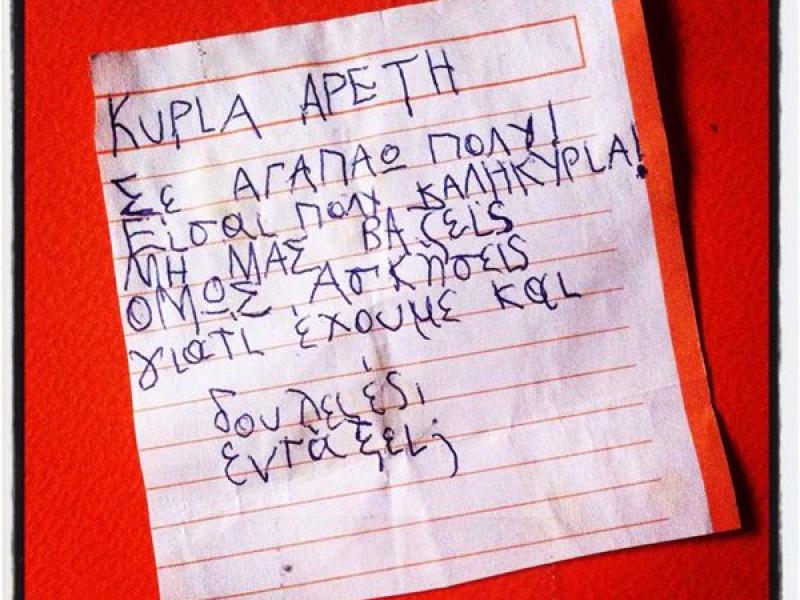 ΚΥΡΙΑ ΑΡΕΤΗ
Σε ΑΓΑΠΑΩ ΠΟΛΥ!
Είσαι πολυ ΚΑΛΗΚΥΡΙΑ!
ΜΗ ΜΑΣ ΒΑζΕίς
ΟΜΩΣ Ασκήσεις
γιατι έχουμε και
δουλειές,
εντάξει;